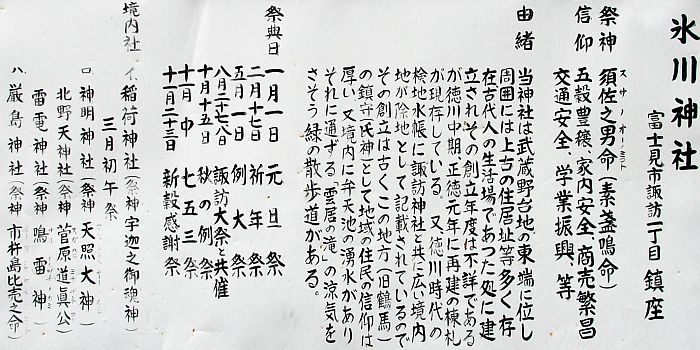 氷川神社
富士見市諏訪一丁目 鎮座
祭神 須佐之男命（素盞鳴命）
スサノオーミコト
信仰 五穀豊穣、家内安全、商売繁昌
交通安全、学業振興、等
由緒
当神社は武蔵野台地の東端に位し
周囲には上古の住居址等多く存
在古代人の生活場であつた処に建
立されその創立年度は不詳である
が徳川中期、正徳元年に再建の棟札
が現存している。又、徳川時代の
検地水帳に諏訪神社と共に広い境内
地が除地として記載されているので
その創立は古くこの地方（旧鶴馬）
の鎮守（氏神）として地域の住民の信仰は
厚い、又境内に弁天池の湧水があり
それに通ずる「雲居の滝」の涼気を
さそう緑の散歩道がある。
祭典日 一月一日 元旦祭
二月十七日 祈年祭
五月一日 例大祭
八月二十七、八日 諏訪大祭と共催
十月十五日 秋の例祭
十月中 七五三祭
十一月二十三日 新穀感謝祭
境内社 イ、稲荷神社（祭神 宇迦之御魂神）
三月初午祭
ロ 神明神社（祭神 天照大神）
北野天神社（祭神 菅原道眞公）
雷電神社（祭神 鳴雷神）
ハ、厳島神社（祭神 市杵島比売之命）